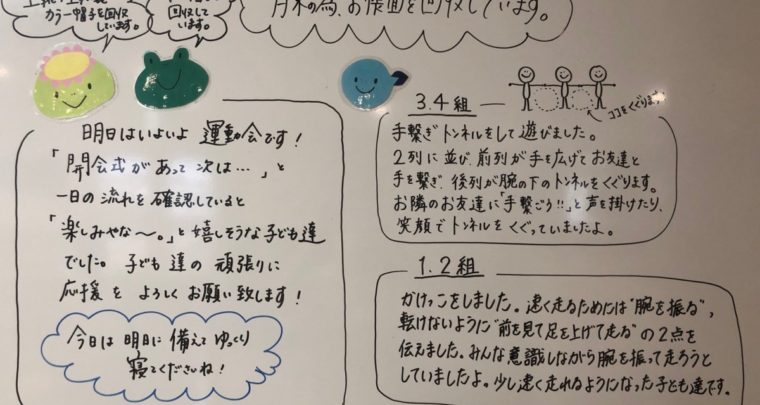 カラー帽子を回収
しています。
回収して
います。
月末の為、お帳面を回収しています。
明日はいよいよ 運動会です！
「開会式があって次は…」と
一日の流れを確認していると
「楽しみやな〜。」と嬉しそうな子ども達
でした。子ども達の頑張りに
応援を よろしくお願い致します！
今日は明日に備えてゆっくり
寝てくださいね！
3.4組
ココをくぐります
手繋ぎトンネルをして遊びました。
2列に並び、前列が手を広げてお友達と
手を繋ぎ、後列が腕の下のトンネルをくぐります。
お隣のお友達に「手繋ごう!!」と声を掛けたり、
笑顔でトンネルをくぐっていましたよ。
1.2組
かけっこをしました。速く走るためには"腕を振る"、
転けないように"前を見て足を上げて走る"の2点を
伝えました。みんな意識しながら腕を振って走ろうと
していましたよ。少し速く走れるようになった子ども達です。